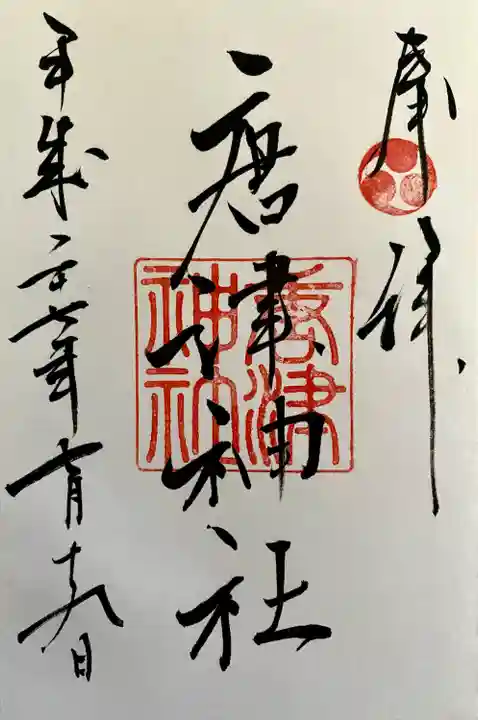 奉拝
唐津神社
唐津
神社
平成二十七年十一月十九日